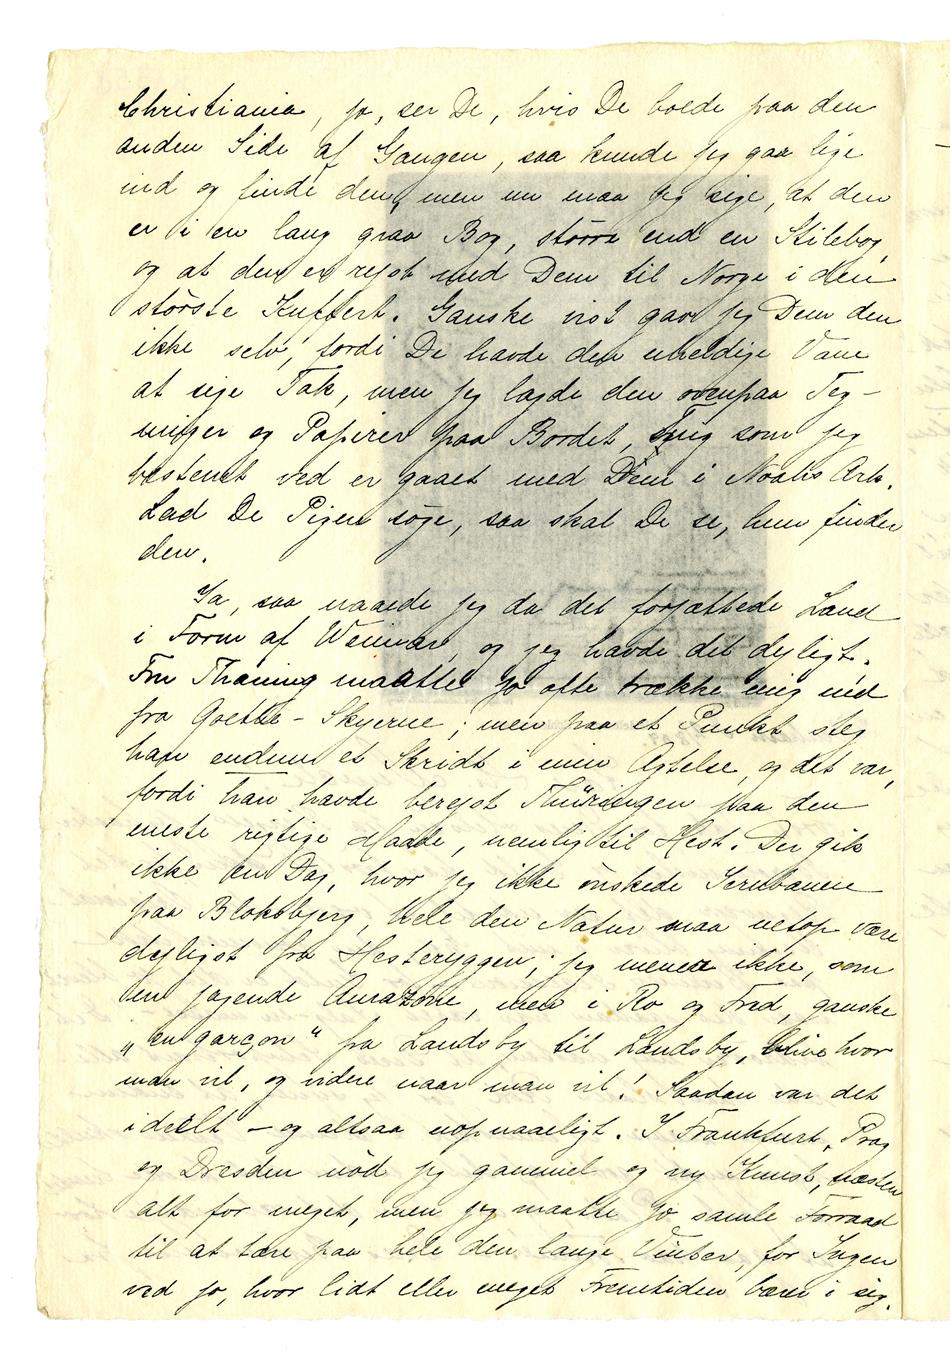 Christiania, jo, ser De, hvis De boede paa den
anden Side af Gangen, saa kunde jeg gaa lige
ind og finde den, men nu maa jeg sige, at den
er i en lang graa Bog, større end en Stilebog,
og at den er rejst med Dem til Norge i den
største Kuffert. Ganske vist gav jeg Dem den
ikke selv, fordi De havde den uheldige Vane
at sige Tak, men jeg lagde den ovenpaa Teg-
ninger og Papirer paa Bordet, som jeg
bestemt ved er gaaet med Dem i Noahs Ark.
Lad De Pigen søge, saa skal De se, hun finder
den.
Ja, saa naaede jeg da det forjættede Land
i Form af Weimar, og jeg havde det dejligt.
Fru Thaning maatte jo ofte trække mig ned
fra Goethe-Skyerne; men paa et Punkt steg
han endnu et Skridt i min Agtelse, og det var,
fordi han havde berejst Thüringen paa den
eneste rigtige Maade, nemlig til Hest. Der gik
ikke en Dag, hvor jeg ikke ønskede Jernbanen
paa Bloksbjerg, hele den Natur maa netop være
dejligst fra Hesteryggen; jeg mener ikke, som
en jagende Amazone, men i Ro og Fred, ganske
"en garçon" fra Landsby til Landsby, blive hvor
man vil, og videre naar man vil! Saadan var det
ideelt – og altsaa uopnaaeligt. I Frankfurt, Prag
og Dresden nød jeg gammel og ny Kunst, næsten
alt for meget, men jeg maatte jo samle Forraad
til at tære paa hele den lange Vinter, for Ingen
ved jo, hvor lidt eller meget Fremtiden bærer i sig.